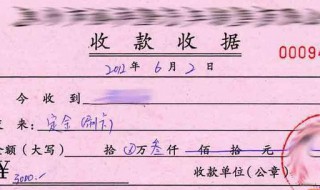 收款收据
00094
2012年6月2日
今收到
来：定金（刷卡）
金额（大写） 拾⊗万叁仟佰拾元
¥3000： 收款单位（公章）